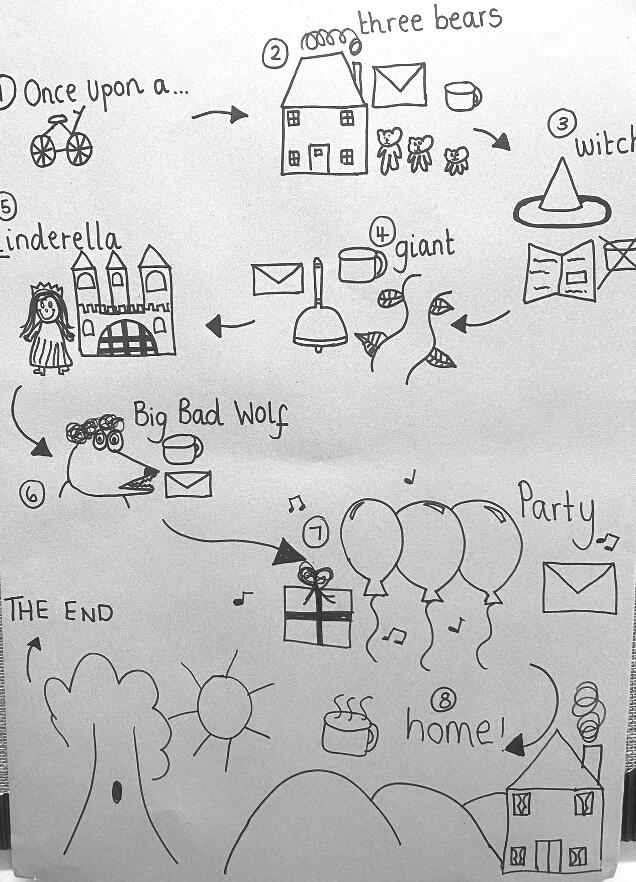 1 Once Upon a...
2 three bears
3 witch
4 giant
5 Cinderella
6 Big Bad Wolf
7 Party
8 home!
THE END